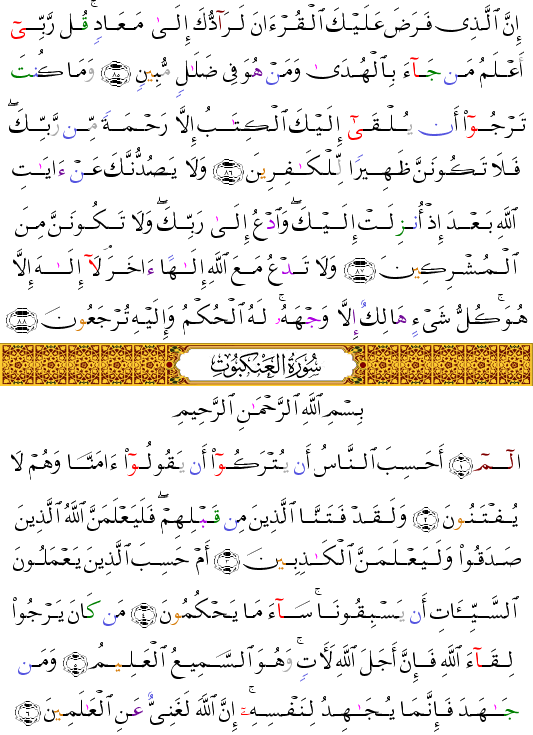 إِنَّ ٱلَّذِى فَرَضَ عَلَيْكَ ٱلْقُرْءَانَ لَرَآدُّكَ إِلَىٰ مَعَادٍۢ ۚ قُل رَّبِّىٓ
أَعْلَمُ مَن جَآءَ بِٱلْهُدَىٰ وَمَنْ هُوَ فِى ضَلَـٰلٍۢ مُّبِينٍۢ ٨٥ وَمَا كُنتَ
تَرْجُوٓا۟ أَن يُلْقَىٰٓ إِلَيْكَ ٱلْكِتَـٰبُ إِلَّا رَحْمَةًۭ مِّن رَّبِّكَ ۖ
فَلَا تَكُونَنَّ ظَهِيرًۭا لِّلْكَـٰفِرِينَ ٨٦ وَلَا يَصُدُّنَّكَ عَنْ ءَايَـٰتِ
ٱللَّهِ بَعْدَ إِذْ أُنزِلَتْ إِلَيْكَ ۖ وَٱدْعُ إِلَىٰ رَبِّكَ ۖ وَلَا تَكُونَنَّ مِنَ
ٱلْمُشْرِكِينَ ٨٧ وَلَا تَدْعُ مَعَ ٱللَّهِ إِلَـٰهًا ءَاخَرَ ۘ لَآ إِلَـٰهَ إِلَّا
هُوَ ۚ كُلُّ شَىْءٍ هَالِكٌ إِلَّا وَجْهَهُۥ ۚ لَهُ ٱلْحُكْمُ وَإِلَيْهِ تُرْجَعُونَ ٨٨
سُورَةُ العَنكَبُوتِ
بِسْمِ ٱللَّهِ ٱلرَّحْمَـٰنِ ٱلرَّحِيمِ
الٓمٓ ١ أَحَسِبَ ٱلنَّاسُ أَن يُتْرَكُوٓا۟ أَن يَقُولُوٓا۟ ءَامَنَّا وَهُمْ لَا
يُفْتَنُونَ ٢ وَلَقَدْ فَتَنَّا ٱلَّذِينَ مِن قَبْلِهِمْ ۖ فَلَيَعْلَمَنَّ ٱللَّهُ ٱلَّذِينَ
صَدَقُوا۟ وَلَيَعْلَمَنَّ ٱلْكَـٰذِبِينَ ٣ أَمْ حَسِبَ ٱلَّذِينَ يَعْمَلُونَ
ٱلسَّيِّـَٔاتِ أَن يَسْبِقُونَا ۚ سَآءَ مَا يَحْكُمُونَ ٤ مَن كَانَ يَرْجُوا۟
لِقَآءَ ٱللَّهِ فَإِنَّ أَجَلَ ٱللَّهِ لَـَٔاتٍۢ ۚ وَهُوَ ٱلسَّمِيعُ ٱلْعَلِيمُ ٥ وَمَن
جَـٰهَدَ فَإِنَّمَا يُجَـٰهِدُ لِنَفْسِهِۦٓ ۚ إِنَّ ٱللَّهَ لَغَنِىٌّ عَنِ ٱلْعَـٰلَمِينَ ٦